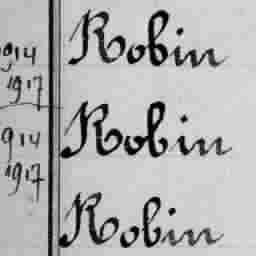 914 Robin
1917
914 Robin
1917
Robin